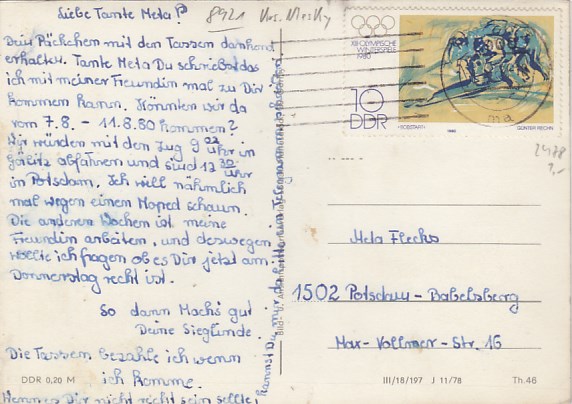 Liebe Tante Meta!
Dein Päckchen mit den Tassen dankend
erhalten. Tante Meta Du schriebst das
ich mit meiner Freundin mal zu Dir
kommen kann. Könnten wir da
vom 7.8. - 11.8.80 kommen?
Wir würden mit den Zug 9 02 Uhr in
Görlitz abfahren und sind 13 30 Uhr
in Potsdam. Ich will nähmlich
mal wegen einem Moped schaun.
Die anderen Wochen ist meine
Freundin arbeiten, und deswegen
wollte ich fragen ob es Dir jetzt am
Donnerstag recht ist.
So dann Machs gut
Deine Sieglinde.
Die Tassen bezahle ich wenn
ich komme.
Wenn es Dir nicht recht sein sollte,
kannst Du mir da bitte ein Telegramm
DDR 0,20 M
8921
XIII. OLYMPISCHE
WINTERSPIELE
1980
10
DDR
»BOBSTART«
1980
GÜNTER RECHN
2478
Meta Flecks
1502 Potsdam-Babelsberg
Max-Vollmer-Str. 16
III/18/197 J 11/78
Th.46